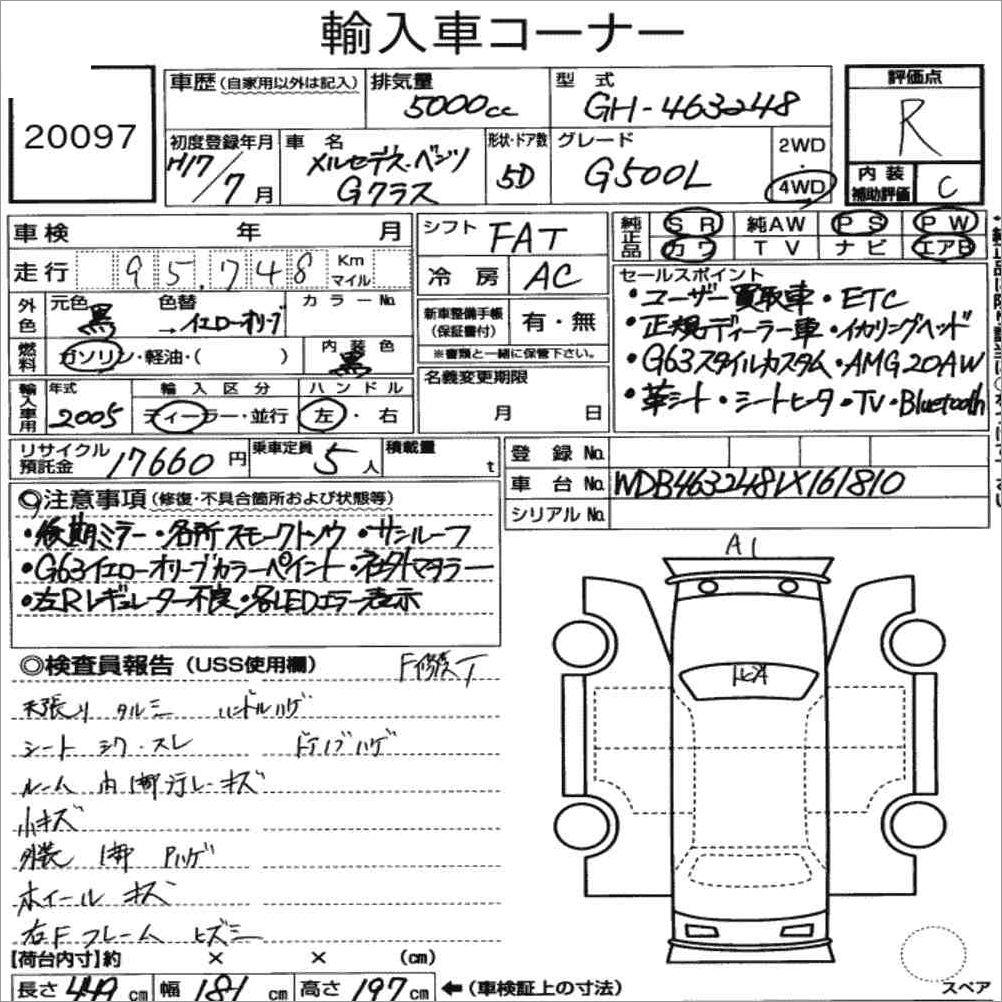 輸入車コーナー
20097
車歴 (自家用以外は記入)
排気量
5000cc
型式
GH-463248
評価点
R
初度登録年月
H17/7月
車名
メルセデス・ベンツ
Gクラス
形状・ドア数
5D
グレード
G500L
2WD
・
4WD
内装
補助評価
C
車検 年 月
走行 95,748 Km
マイル
シフト FAT
冷房 AC
純正品
SR 純AW PS PW
カワ TV ナビ エアB
セールスポイント
・ユーザー買取車・ETC
・正規ディーラー車・イカリングヘッド
・G63スタイルカスタム・AMG20AW
・革シート・シートヒータ・TV・Bluetooth
外色
元色 黒 色替 →イエローオリーブ
カラーNo.
燃料
ガソリン・軽油・( )
内装色
黒
新車整備手帳
(保証書付)
有・無
※書類と一緒に保管下さい。
輸入車用
年式
2005
輸入区分
ディーラー・並行
ハンドル
左・右
名義変更期限
月 日
リサイクル
預託金 17660円
乗車定員 5人
積載量 t
登録No.
車台No. WDB4632481X161810
シリアルNo.
◎注意事項 (修復・不具合箇所および状態等)
・後期ミラー・各所スモークトソウ・サンルーフ
・G63イエローオリーブカラーペイント・社外マフラー
・左Rレギュレーター不良・各LEDエラー表示
◎検査員報告 (USS使用欄)
F修復T
天張り タルミ ハンドルハゲ
シート シワ・スレ ドアノブハゲ
ルーム内1部汚レ・キズ
小キズ
外装 1部 Pハゲ
ホイール キズ
右Fフレーム ヒズミ
A1
【荷台内寸】約 × × (cm)
長さ 449cm 幅 181cm 高さ 197cm ←(車検証上の寸法)
スペア